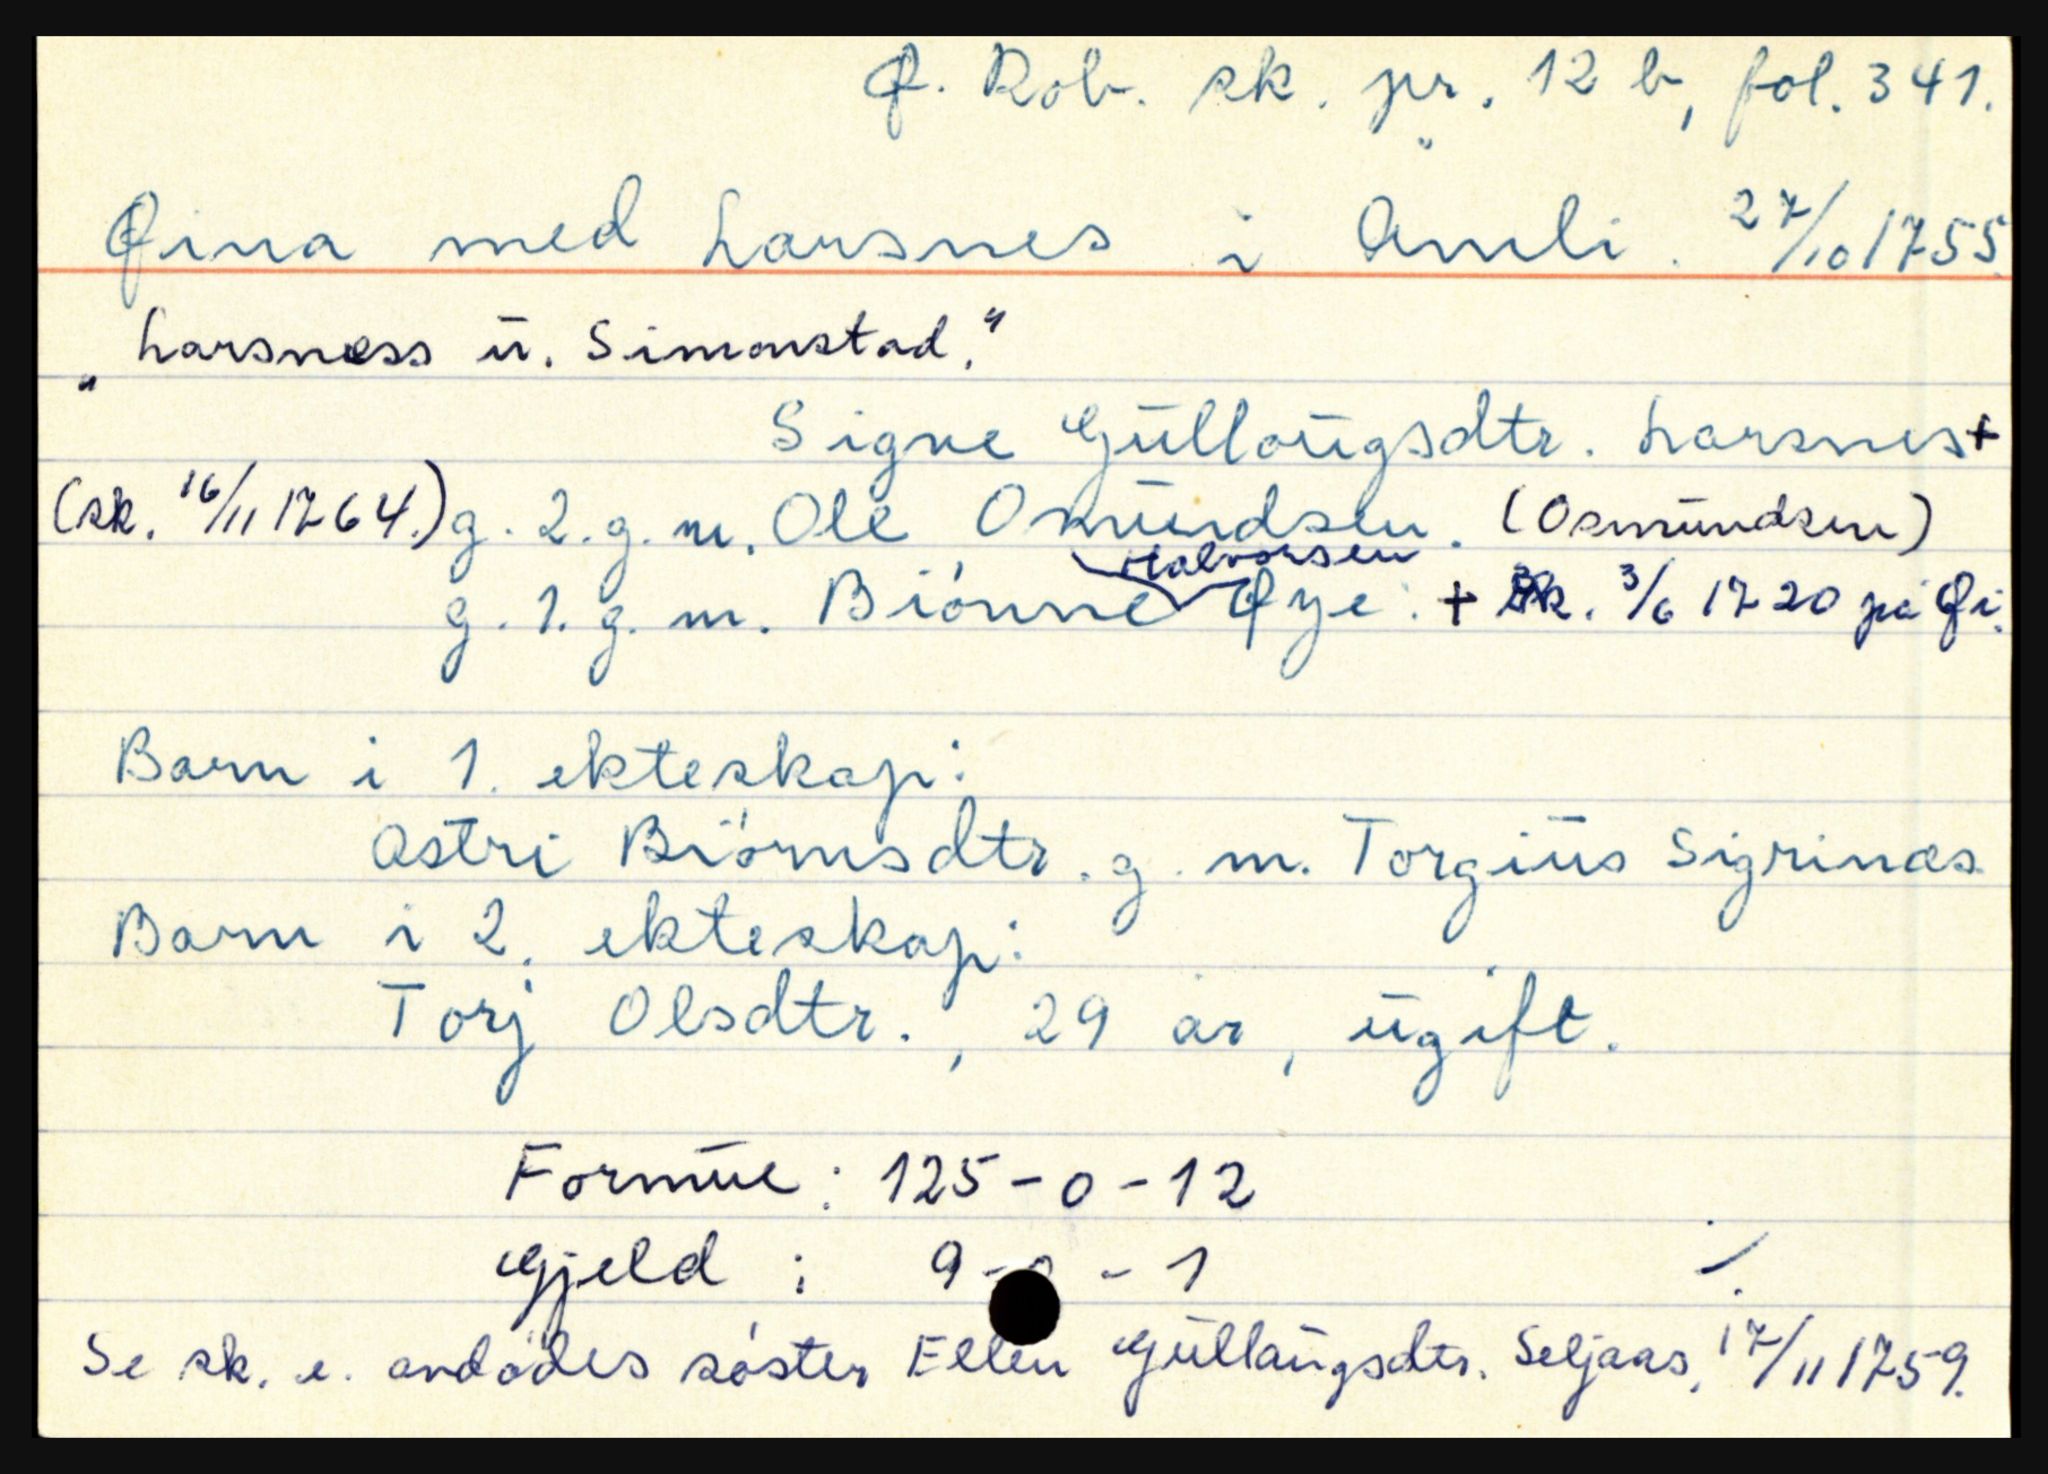 Ø. Rob. sk. pr. 12 b, fol. 341.
Øina med Larsnes i Åmli. 27/10 1755.
"Larsness ü. Simonstad."
Signe Güllaügsdtr. Larsnes +
(sk. 16/11 1764.) g. 2. g. m. Ole Omündsen. (Osmündsen)
Halvorsen
g. 1. g. m. Biónne Øye. + Sk. 3/6 1720 på Øi.
Barn i 1. ekteskap:
Astri Biórnsdtr. g. m. Torgiüs Sigrinæs
Barn i 2. ekteskap:
Torj Olsdtr., 29 år, ügift.
Formüe: 125-0-12
Gjeld : 9-0-1 ./.
Se sk. e. avdódes sóster Ellen Güllaügsdtr. Seljaas, 17/11 1759.